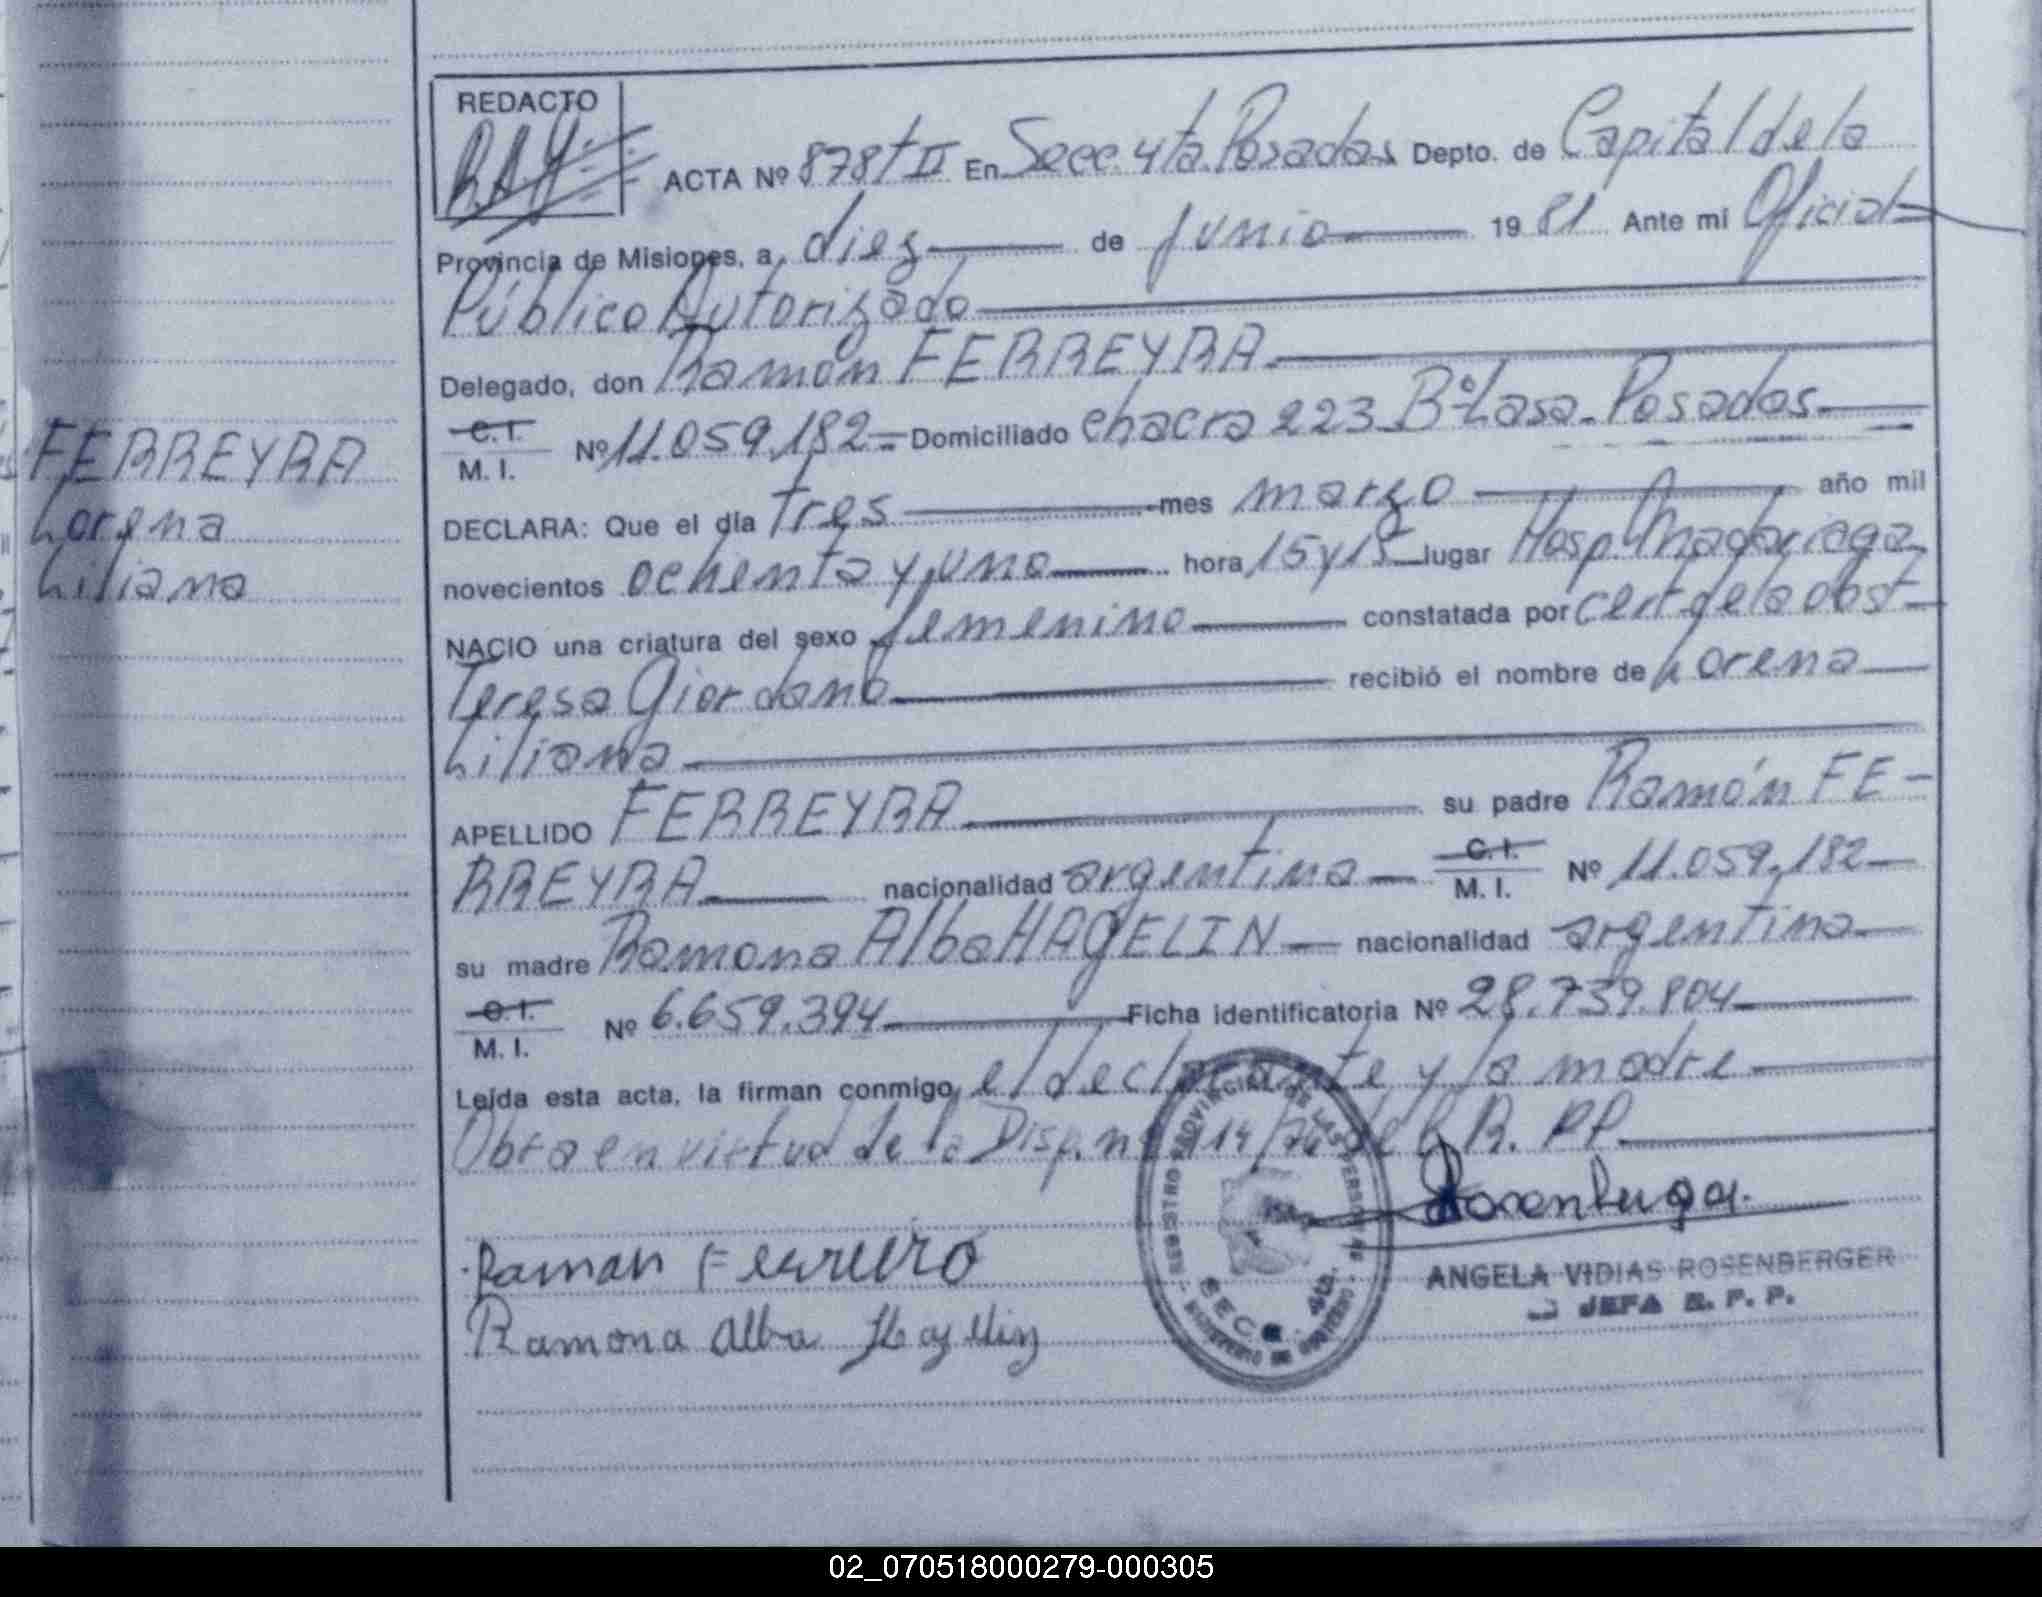 REDACTO
ACTA Nº 878 t II En Secc. 4ta. Posadas Depto. de Capital de la
Provincia de Misiones, a diez de junio 1981 Ante mi Oficial
Público Autorizado
Delegado, don Ramón FERREYRA
C. I.
M. I. Nº 11.059.182 Domiciliado chacra 223 Bº Posadas
DECLARA: Que el día tres mes marzo año mil
novecientos ochenta y uno hora 15 y 15 lugar Hosp. Madariaga
NACIO una criatura del sexo femenino constatada por cert de la obst
Teresa Giordano recibió el nombre de Lorena
Liliana
APELLIDO FERREYRA su padre Ramón FE-
RREYRA nacionalidad argentina C. I. M. I. Nº 11.059.182
su madre Ramona Alba HAGELIN nacionalidad argentina
C. I.
M. I. Nº 6.659.394 Ficha identificatoria Nº 28.739.804
Leída esta acta, la firman conmigo, el declarante y la madre
Obra en virtud de la Disp. nº 14/ del R. PP.
Ramona Alba
ANGELA VIDIAS ROSENBERGER
JEFA R. P. P.
REGISTRO PROVINCIAL DE LAS PERSONAS
SECC. 4ta.
MINISTERIO DE GOBIERNO
FERREYRA
Lorena
Liliana
02_070518000279-000305